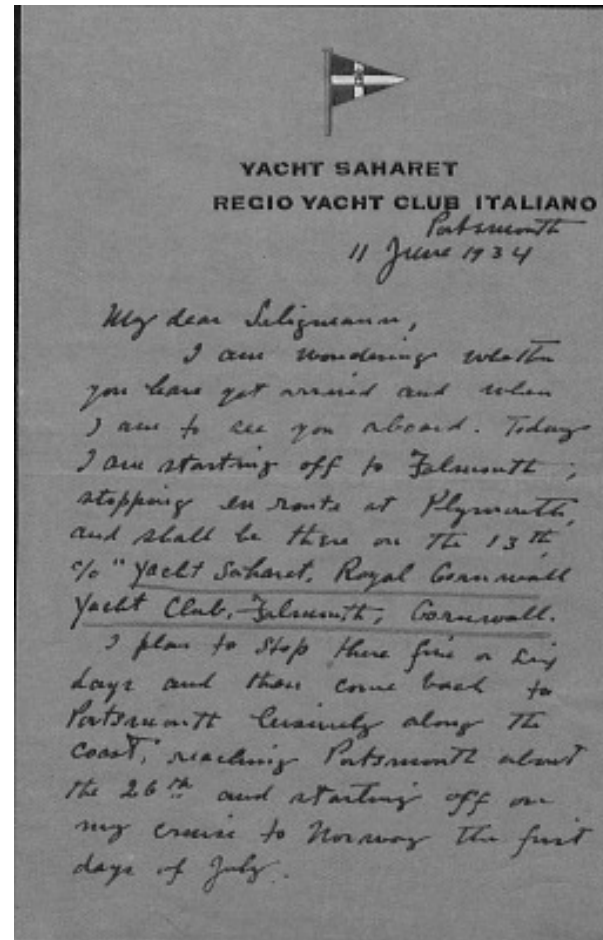 YACHT SAHARET
REGIO YACHT CLUB ITALIANO
Portsmouth
11 June 1934
My dear Seligmann,
I am wondering whether
you have yet arrived and when
I am to see you aboard. Today
I am starting off to Falmouth,
stopping en route at Plymouth,
and shall be there on the 13th,
c/o "Yacht Saharet, Royal Cornwall
Yacht Club, Falmouth, Cornwall.
I plan to stop there five or six
days and then come back to
Portsmouth leisurely along the
coast, reaching Portsmouth about
the 26th and starting off on
my cruise to Norway the first
days of July.